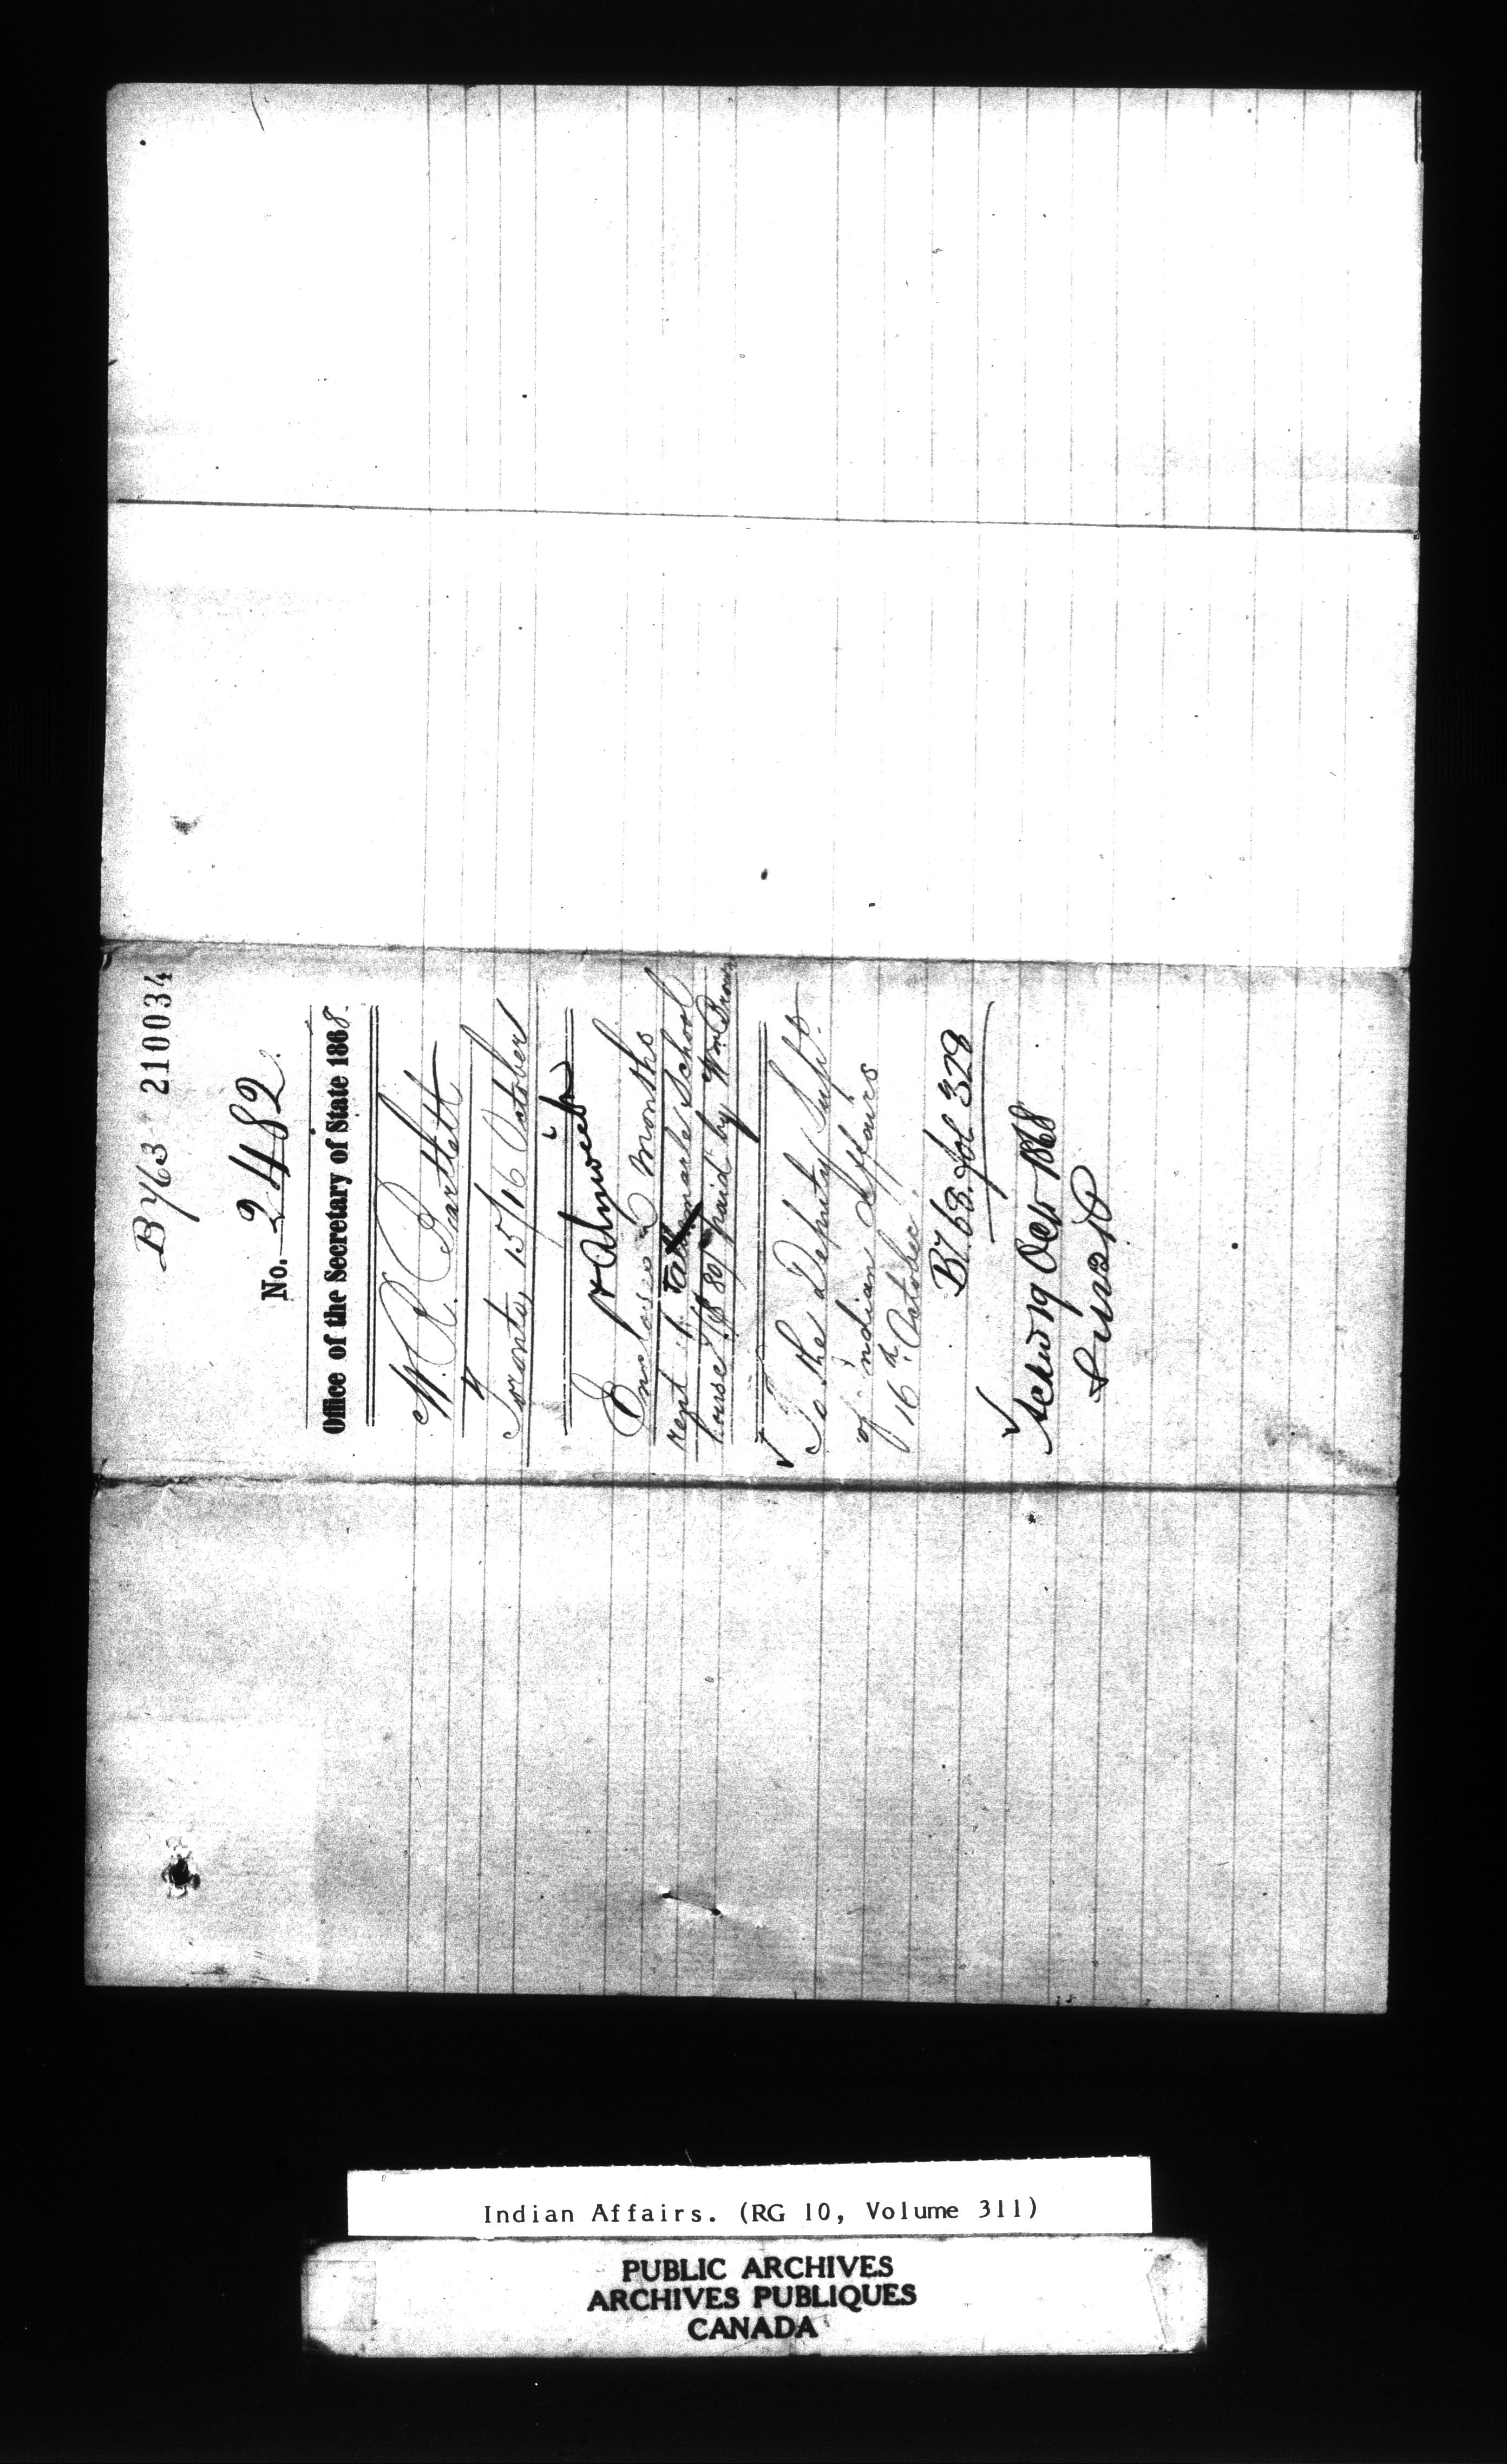 B 463 210034
No. 2482.
Office of the Secretary of State 1868.
W. R. Bartlett
Toronto, 15/16 October
Encloses 2 months
rent of School
house $ 80/ paid by Wm Brown
To the Deputy Supt.
of Indian Affairs
16th October.
B. 763. fol 328
19 Oct 1868
Indian Affairs. (RG 10, Volume 311)
PUBLIC ARCHIVES
ARCHIVES PUBLIQUES
CANADA